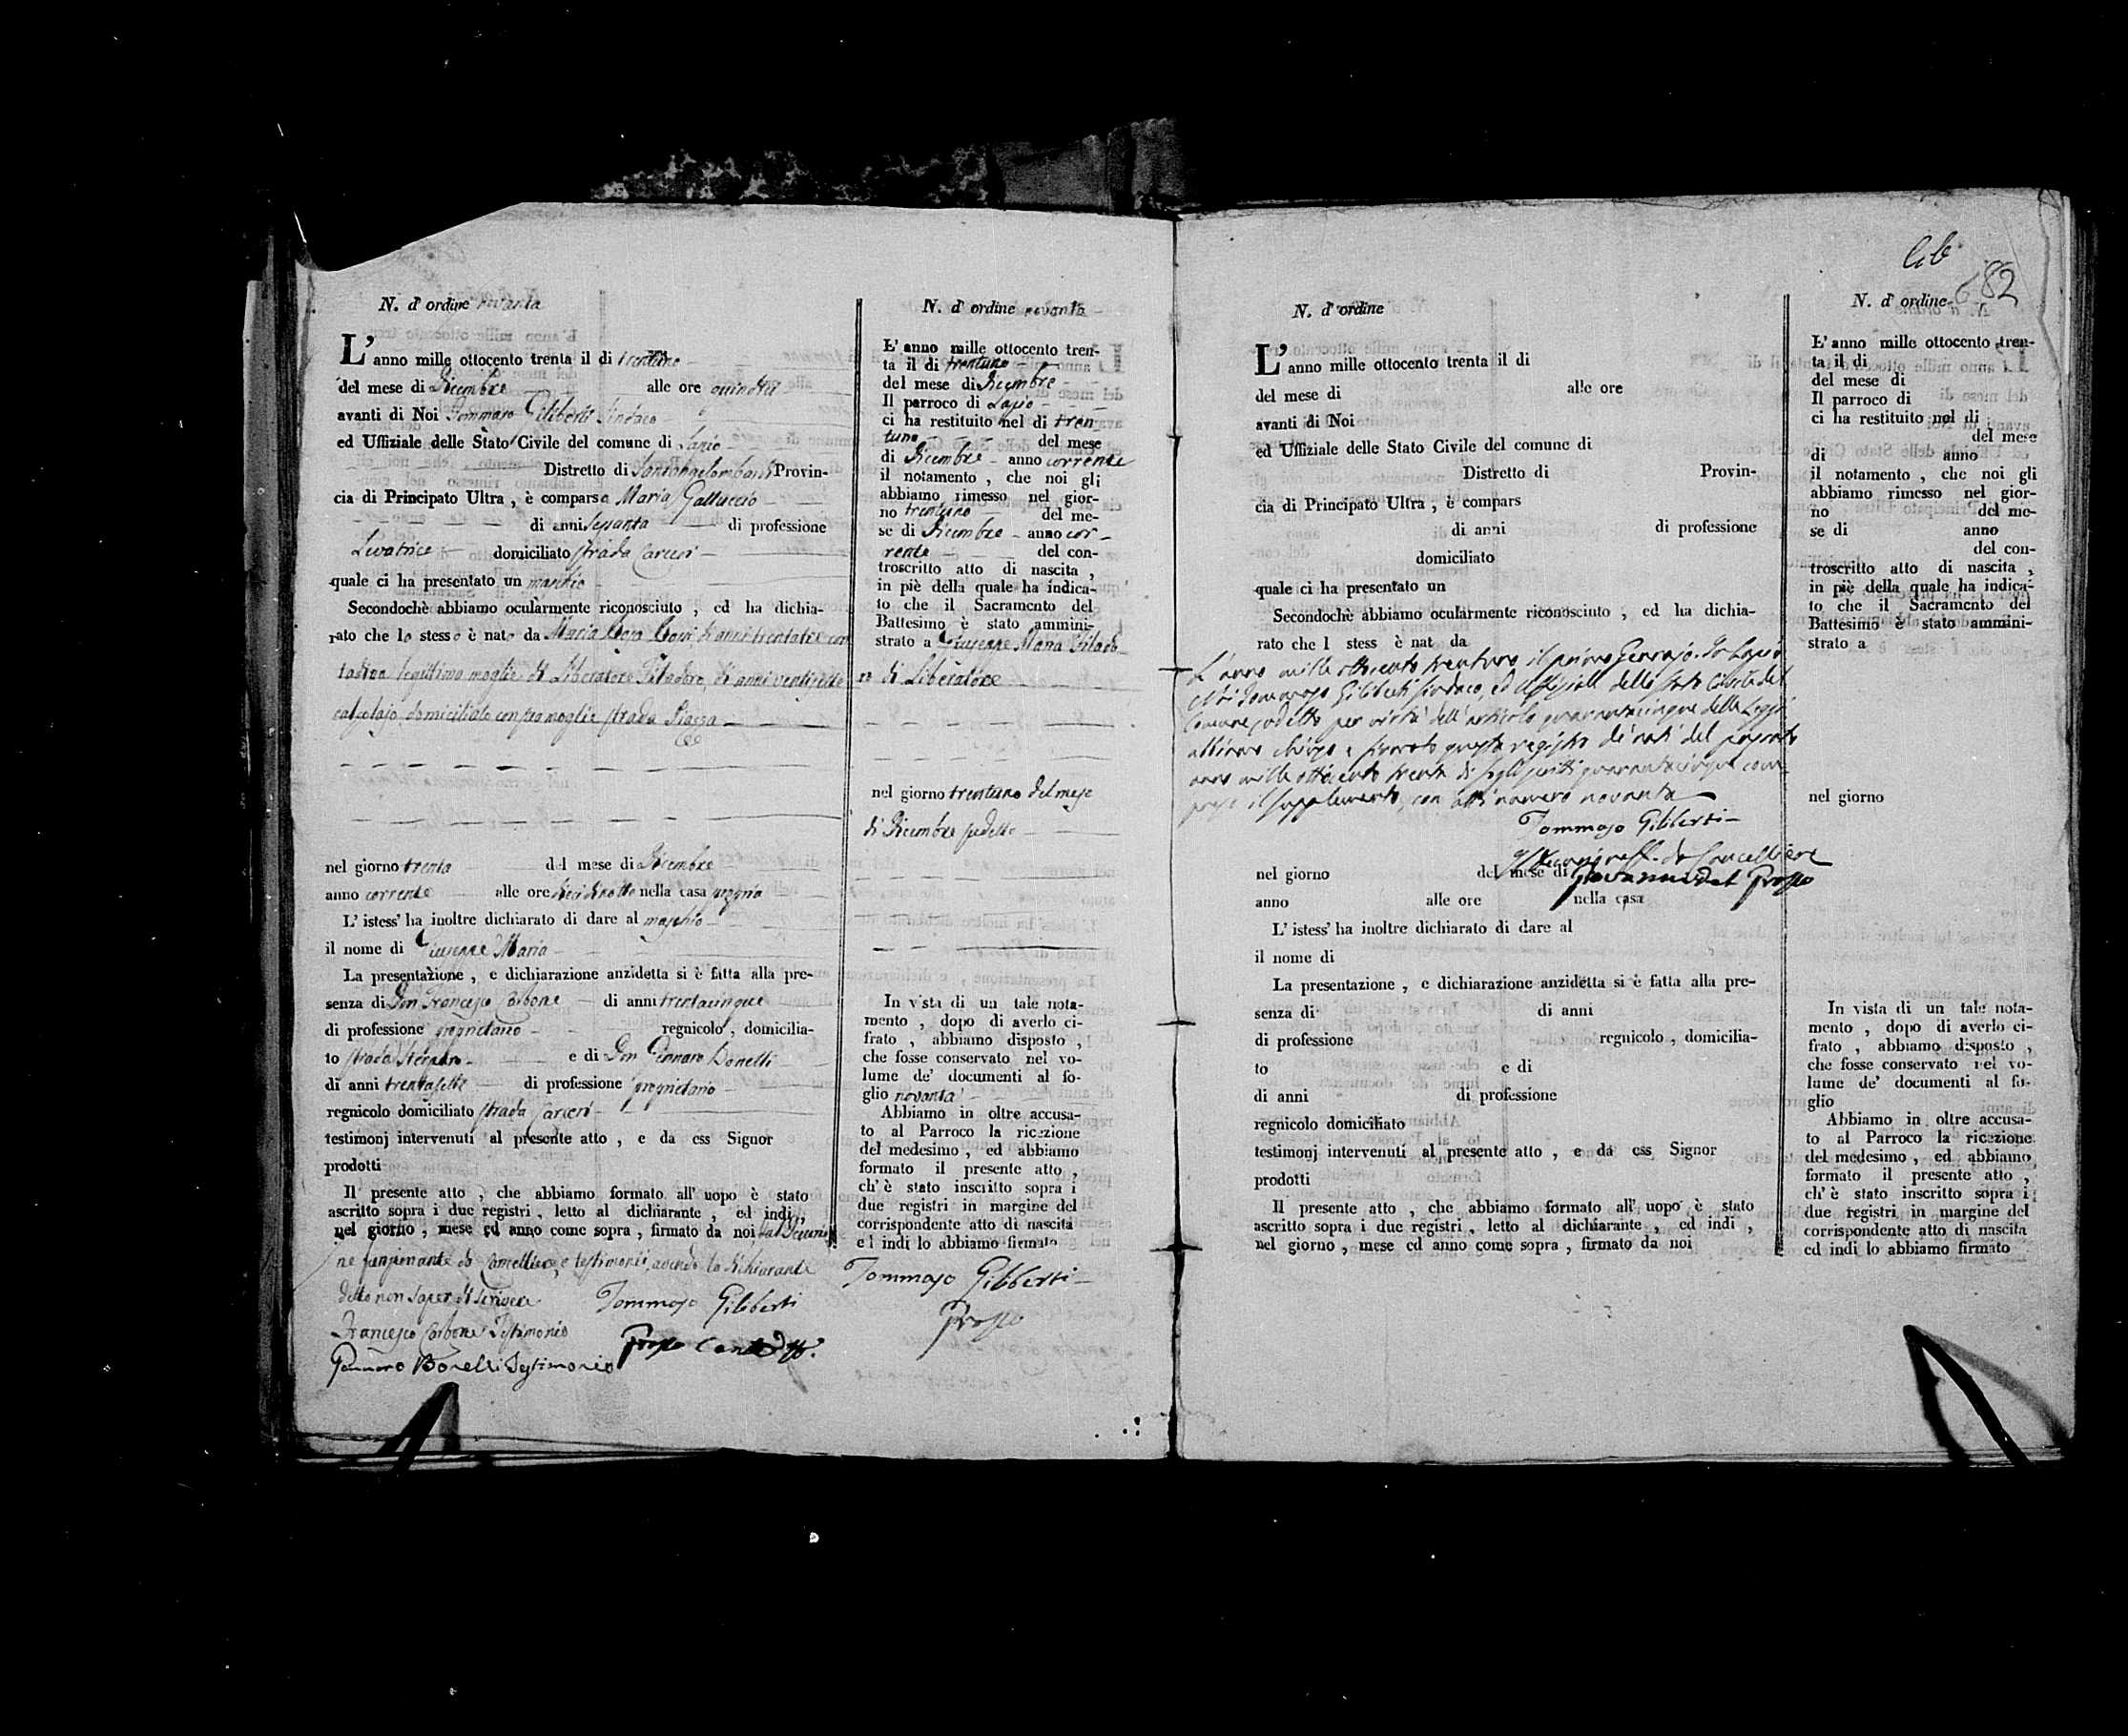 N. d'ordine novanta
L'anno mille ottocento trenta il di trentuno
del mese di Dicembre alle ore quindici
avanti di Noi Tommaso Giliberti Sindaco
ed Uffiziale delle Stato Civile del comune di Lapio
Distretto di Santangelombardi Provin-
cia di Principato Ultra , è comparsa Maria Galluccio
di anni sessanta di professione
Levatrice domiciliato strada Carceri
quale ci ha presentato un maschio
Secondochè abbiamo ocularmente riconosciuto , ed ha dichia-
rato che lo stesso è nato da Maria di anni
legittima moglie di Liberatore Filadoro, di anni ventisette
calzolajo, domiciliato con sua moglie strada Piazza
nel giorno trenta del mese di Dicembre
anno corrente alle ore dieciotto nella casa propria
L'istess' ha inoltre dichiarato di dare al maschio
il nome di Giuseppe Maria
La presentazione , e dichiarazione anzidetta si è fatta alla pre-
senza di Don Francesco Carbone di anni trentacinque
di professione proprietario regnicolo , domicilia-
to strada e di Don Gennaro Bonelli
di anni trentasette di professione proprietario
regnicolo domiciliato strada Carceri
testimonj intervenuti al presente atto , e da ess Signor
prodotti
Il presente atto , che abbiamo formato all' uopo è stato
ascritto sopra i due registri , letto al dichiarante , ed indi ,
nel giorno , mese ed anno come sopra , firmato da noi, dal Decurio
ne funzionante da Cancelliere, e testimonj, avendo la dichiarante
detto non saper di scrivere
Tommaso Giliberti
Francesco Carbone Testimonio
Gennaro Bonelli Testimonio
N. d'ordine novanta
L'anno mille ottocento tren-
ta il di trentuno
del mese di Dicembre
Il parroco di Lapio
ci ha restituito nel di tren
tuno del mese
di Dicembre anno corrente
il notamento , che noi gli
abbiamo rimesso nel gior-
no trentuno del me-
se di Dicembre anno cor-
rente del con-
troscritto atto di nascita ,
in piè della quale ha indica-
to che il Sacramento del
Battesimo è stato ammini-
strato a Giuseppe Maria Filado
ro di Liberatore
nel giorno trentuno del mese
di Dicembre sudetto
In vista di un tale nota-
mento , dopo di averlo ci-
frato , abbiamo disposto ,
che fosse conservato nel vo-
lume de' documenti al fo-
glio novanta
Abbiamo in oltre accusa-
to al Parroco la ricezione
del medesimo , ed abbiamo
formato il presente atto ,
ch'è stato inscritto sopra i
due registri in margine del
corrispondente atto di nascita
ed indi lo abbiamo firmato
Tommaso Giliberti
82
N. d'ordine
L'anno mille ottocento trenta il di
del mese di alle ore
avanti di Noi
ed Uffiziale delle Stato Civile del comune di
Distretto di Provin-
cia di Principato Ultra , è compars
di anni di professione
domiciliato
quale ci ha presentato un
Secondochè abbiamo ocularmente riconosciuto , ed ha dichia-
rato che l stess è nat da
L'anno mille ottocento trentuno il primo Gennajo. In Lapio
Noi Tommaso Giliberti Sindaco, ed Uffiziale dello Stato Civile del
Comune sudetto per virtù dell'articolo quarantacinque della Legge
abbiamo chiuso e firmato questo registro de' nati del passato
anno mille ottocento trenta di fogli scritti quarantacinque com-
preso il supplemento, con atti numero novanta
Tommaso Giliberti
Il Decurione ff. da Cancelliere
Giovanni del
nel giorno del mese di
anno alle ore nella casa
L'istess' ha inoltre dichiarato di dare al
il nome di
La presentazione , e dichiarazione anzidetta si è fatta alla pre-
senza di di anni
di professione regnicolo , domicilia-
to e di
di anni di professione
regnicolo domiciliato
testimonj intervenuti al presente atto , e da ess Signor
prodotti
Il presente atto , che abbiamo formato all' uopo è stato
ascritto sopra i due registri , letto al dichiarante , ed indi ,
nel giorno , mese ed anno come sopra , firmato da noi
N. d'ordine
L'anno mille ottocento tren-
ta il di
del mese di
Il parroco di
ci ha restituito nel di
del mese
di anno
il notamento , che noi gli
abbiamo rimesso nel gior-
no del me-
se di anno
del con-
troscritto atto di nascita ,
in piè della quale ha indica-
to che il Sacramento del
Battesimo è stato ammini-
strato a
nel giorno
In vista di un tale nota-
mento , dopo di averlo ci-
frato , abbiamo disposto ,
che fosse conservato nel vo-
lume de' documenti al fo-
glio
Abbiamo in oltre accusa-
to al Parroco la ricezione
del medesimo , ed abbiamo
formato il presente atto ,
ch'è stato inscritto sopra i
due registri in margine del
corrispondente atto di nascita
ed indi lo abbiamo firmato